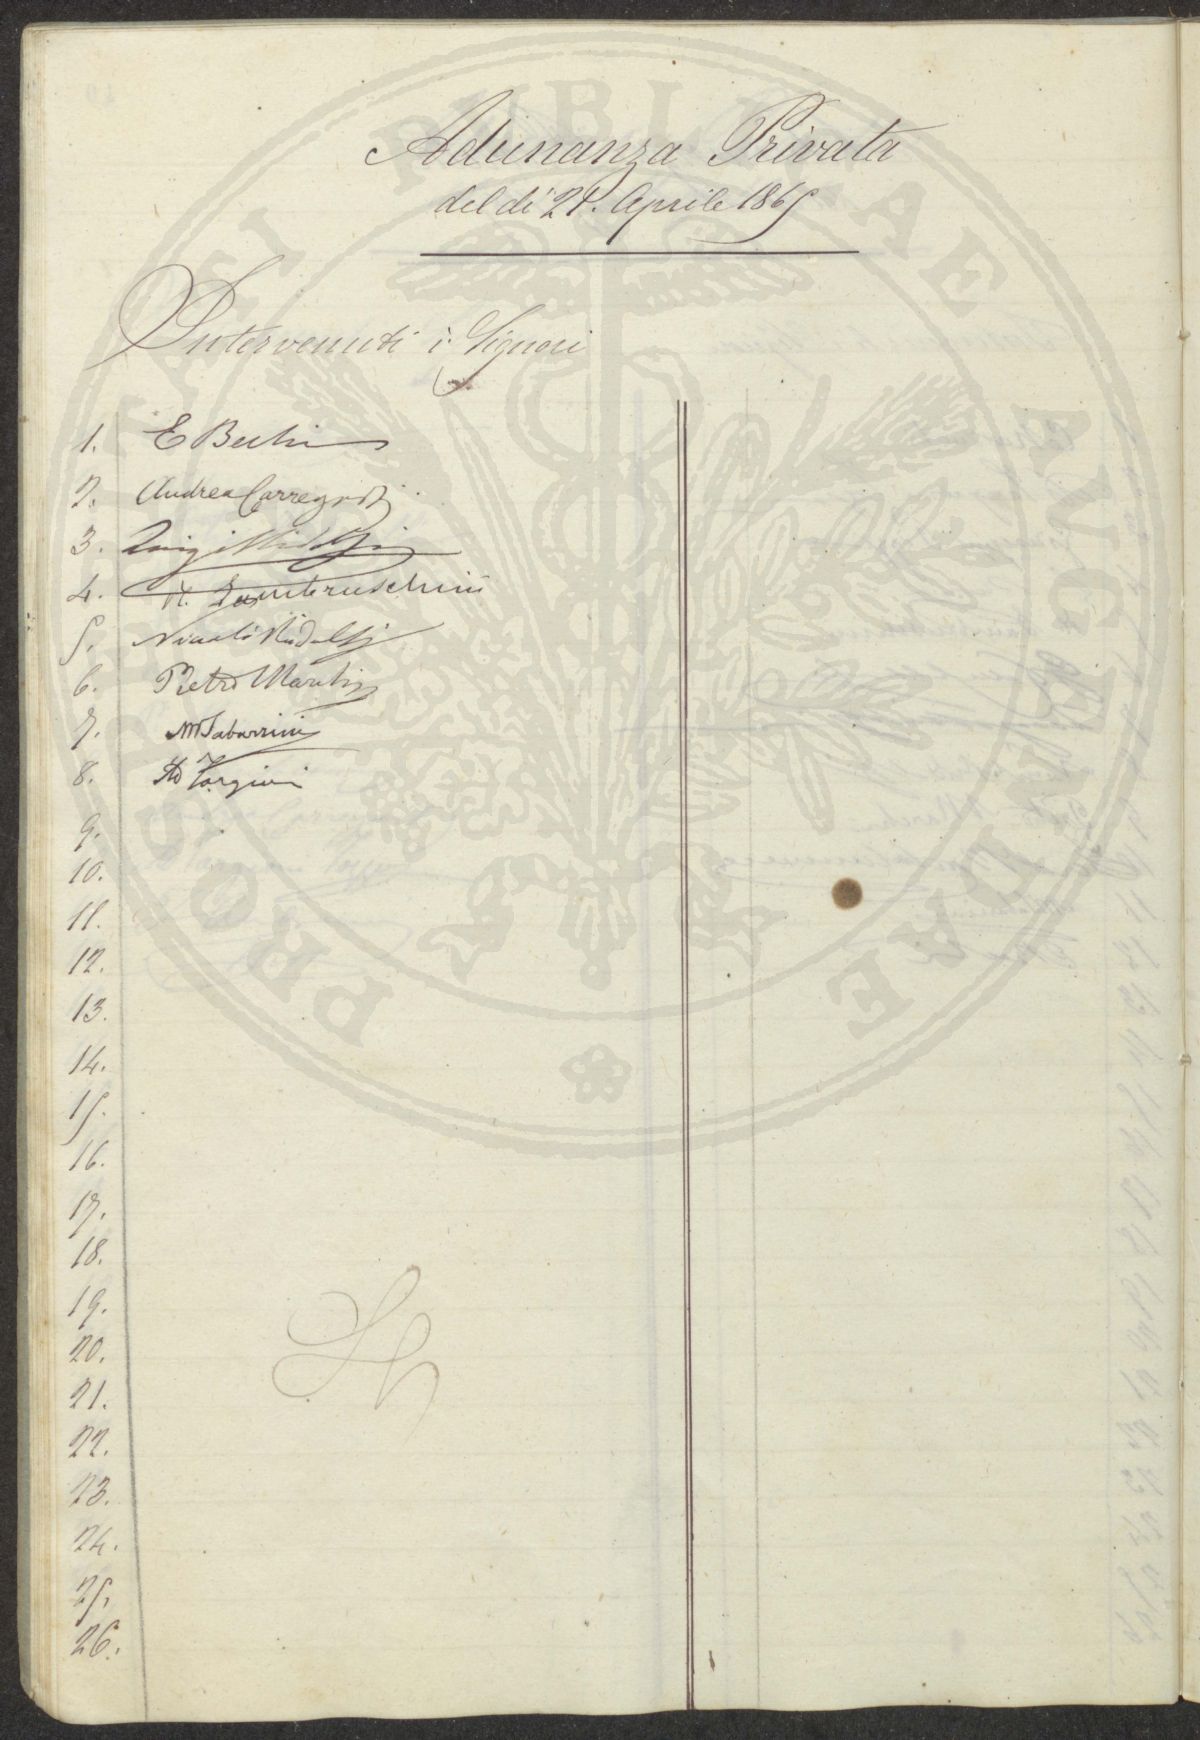 Adunanza Privata
del dì 21. Aprile 1865
Intervenuti i Signori
1. E Bechi
2. Andrea Carregosi
3. Luigi Ridolfi
4. R. Lambruschini
5. Nicolò Ridolfi
6. Pietro
7. M Tabarrini
8.
9.
10.
11.
12.
13.
14.
15.
16.
17.
18.
19.
20.
21.
22.
23.
24.
25.
26.
PROSPERITATI PUBLICAE AUGENDAE